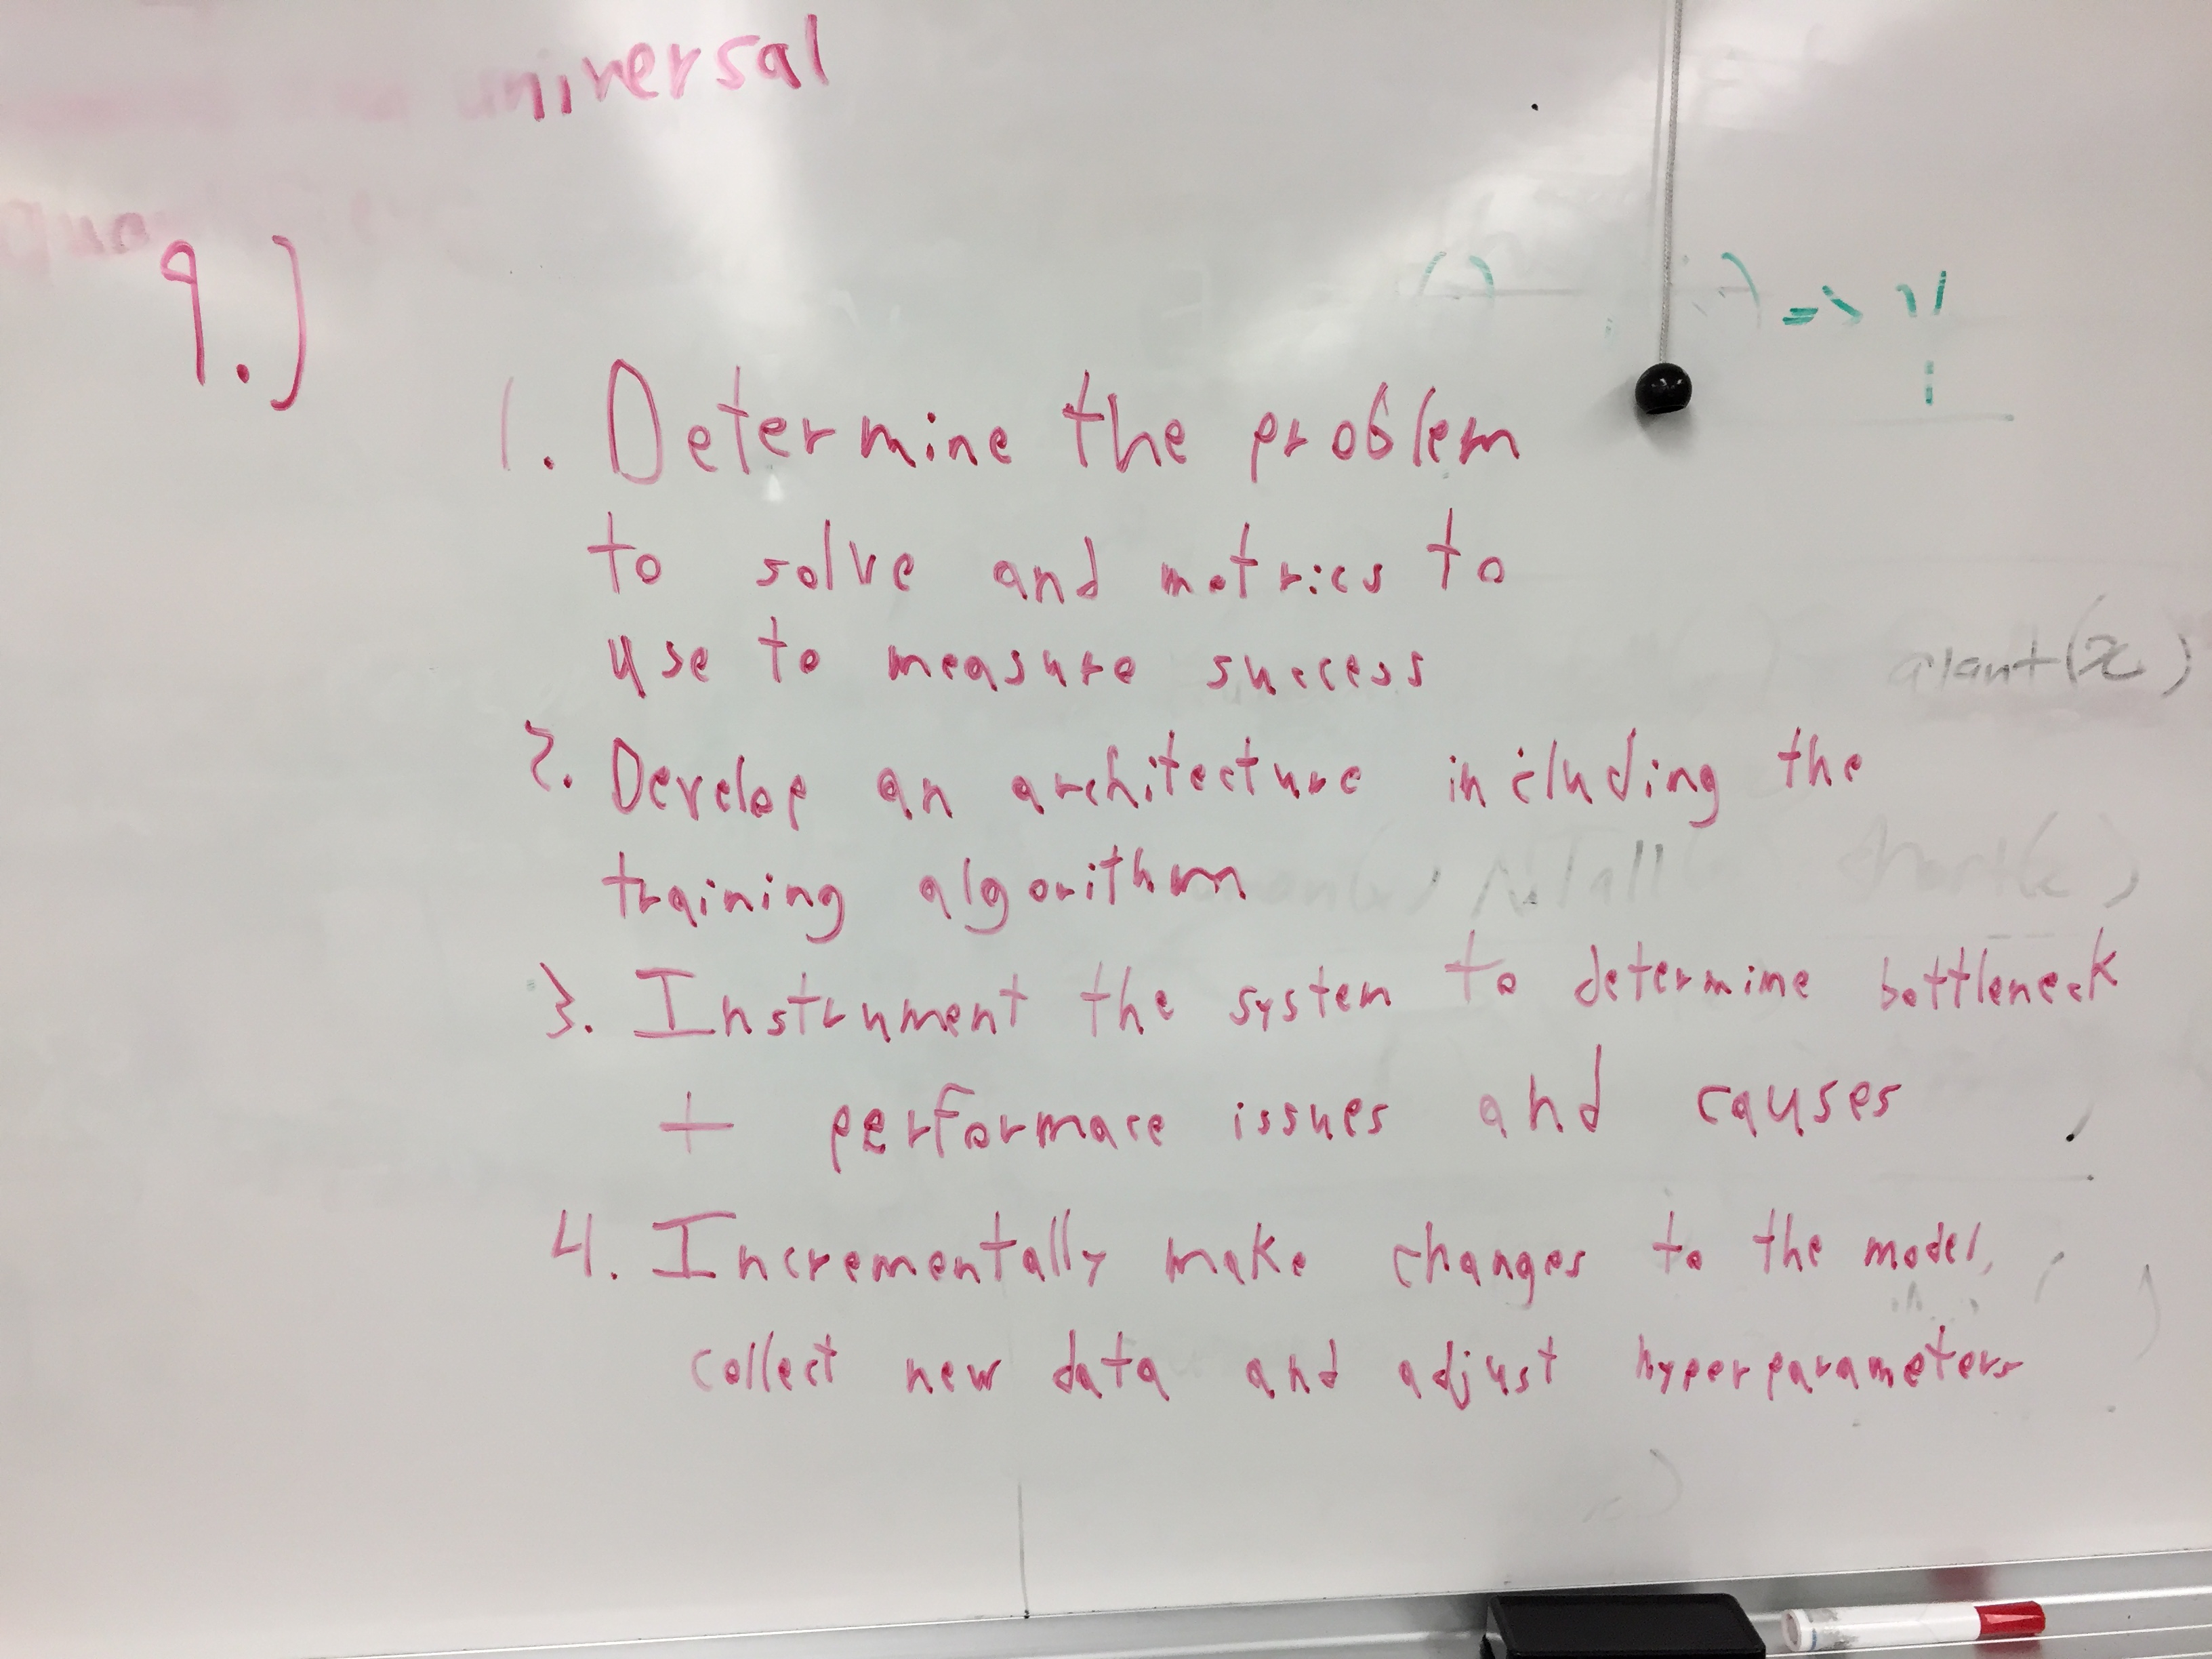 universal
9.)
1. Determine the problem
to solve and metrics to
use to measure success
2. Develop an architecture including the
training algorithm
3. Instrument the system to determine bottleneck
+ performace issues and causes
4. Incrementally make changes to the model,
collect new data and adjust hyperparameters